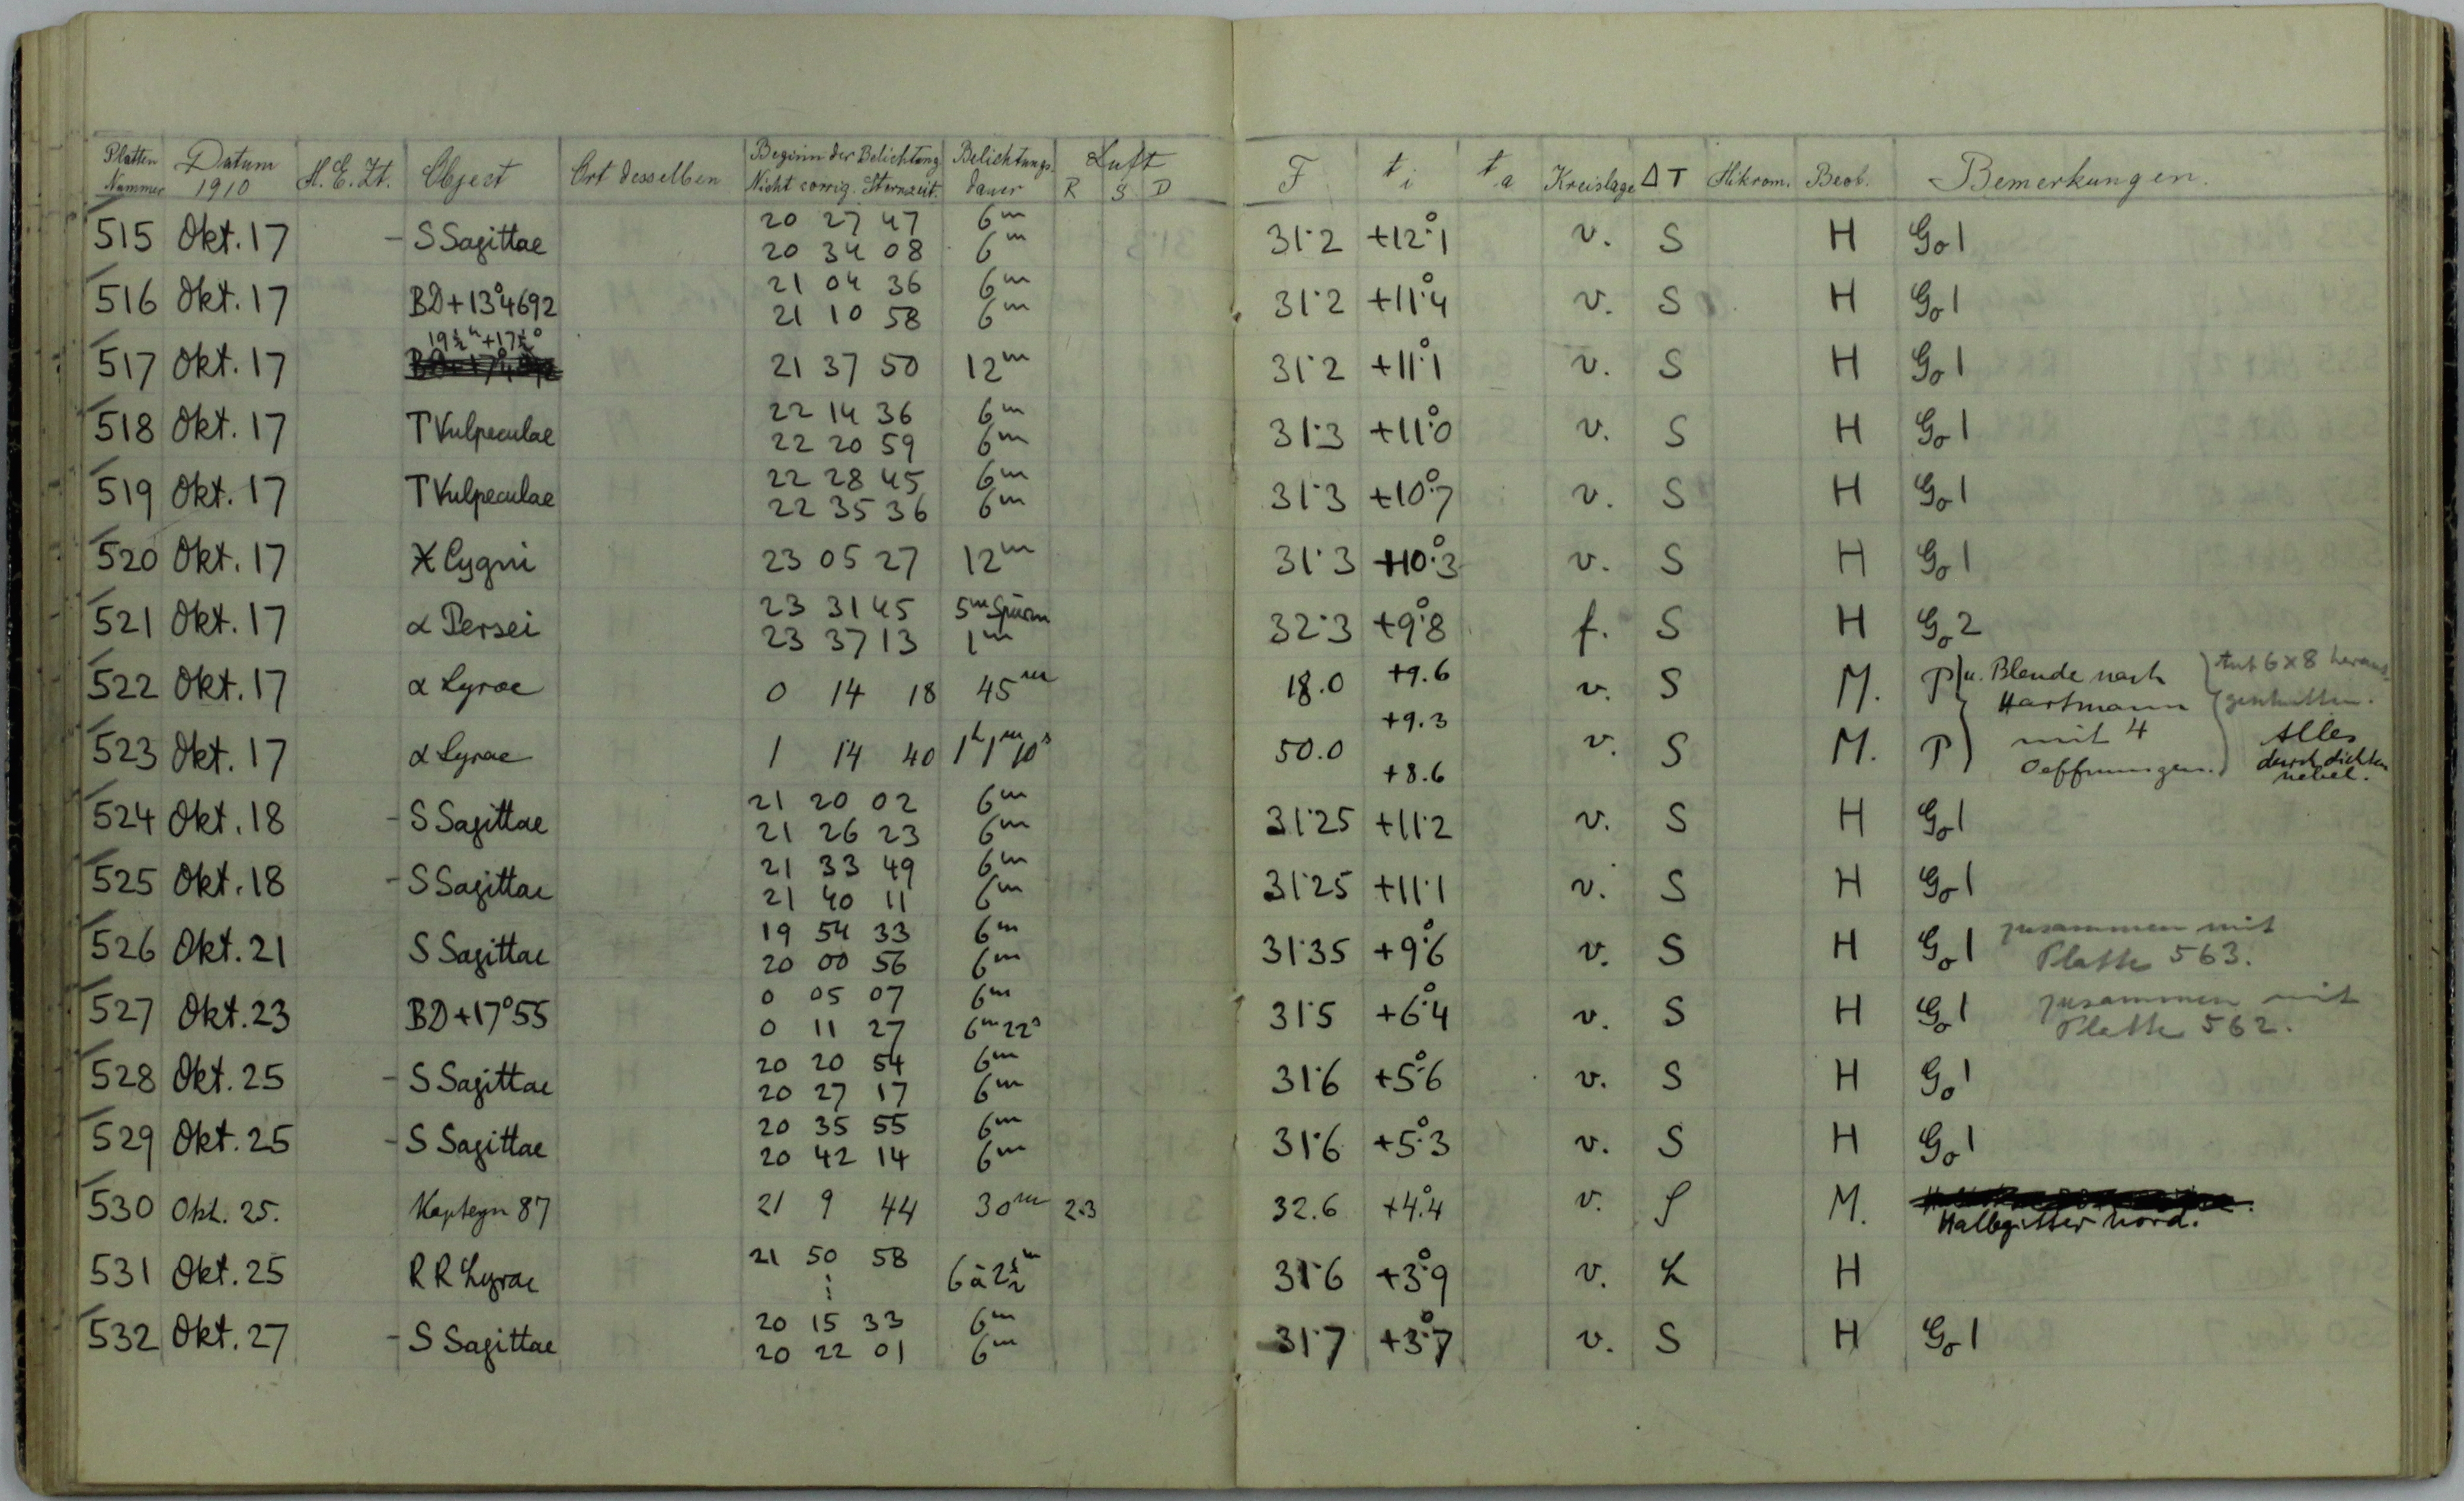 Platten Nummer Datum 1910 M. E. Zt. Object Ort desselben Beginn der Belichtung Nicht corrig. Sternzeit. Belichtungs-dauer Luft R S D F t i t a Kreislage ΔT Mikrom. Beob. Bemerkungen.
515 Okt. 17 – S Sagittae 20 27 47 6m 31.2 +12°.1 v. S H Go 1
20 34 08 6m
516 Okt. 17 BD+13°4692 21 04 36 6m 31.2 +11°.4 v. S H Go 1
21 10 58 6m
517 Okt. 17 19½h +17½° 21 37 50 12m 31.2 +11°.1 v. S H Go 1
518 Okt. 17 T Vulpeculae 22 14 36 6m 31.3 +11°.0 v. S H Go 1
22 20 59 6m
519 Okt. 17 T Vulpeculae 22 28 45 6m 31.3 +10°.7 v. S H Go 1
22 35 36 6m
520 Okt. 17 X Cygni 23 05 27 12m 31.3 +10°.3 v. S H Go 1
521 Okt. 17 α Persei 23 31 45 5m Spuren 32.3 +9°.8 f. S H Go 2
23 37 13 1m
522 Okt. 17 α Lyrae 0 14 18 45m 18.0 +9.6 v. S M. P u. Blende nach Hartmann
+9.3
523 Okt. 17 α Lyrae 1 14 40 1h 1m 10s 50.0 v. S M. P mit 4 Oeffnungen. Alles durch dichten nebel.
+8.6
524 Okt. 18 – S Sagittae 21 20 02 6m 31.25 +11.2 v. S H Go 1
21 26 23 6m
525 Okt. 18 – S Sagittae 21 33 49 6m 31.25 +11.1 v. S H Go 1
21 40 11 6m
526 Okt. 21 S Sagittae 19 54 33 6m 31.35 +9°.6 v. S H Go 1 zusammen mit Platte 563.
20 00 56 6m
527 Okt. 23 BD+17°55 0 05 07 6m 31.5 +6°.4 v. S H Go 1 zusammen mit Platte 562.
0 11 27 6m 22s
528 Okt. 25 – S Sagittae 20 20 54 6m 31.6 +5°.6 v. S H Go 1
20 27 17 6m
529 Okt. 25 – S Sagittae 20 35 55 6m 31.6 +5°.3 v. S H Go 1
20 42 14 6m
530 Okt. 25. Kapteyn 87 21 9 44 30m 2.3 32.6 +4°.4 v. S M. Halbgitter Nord.
531 Okt. 25 RR Lyrae 21 50 58 6 à 2½m 31.6 +3°.9 v. L H
532 Okt. 27 – S Sagittae 20 15 33 6m 31.7 +3°.7 v. S H Go 1
20 22 01 6m